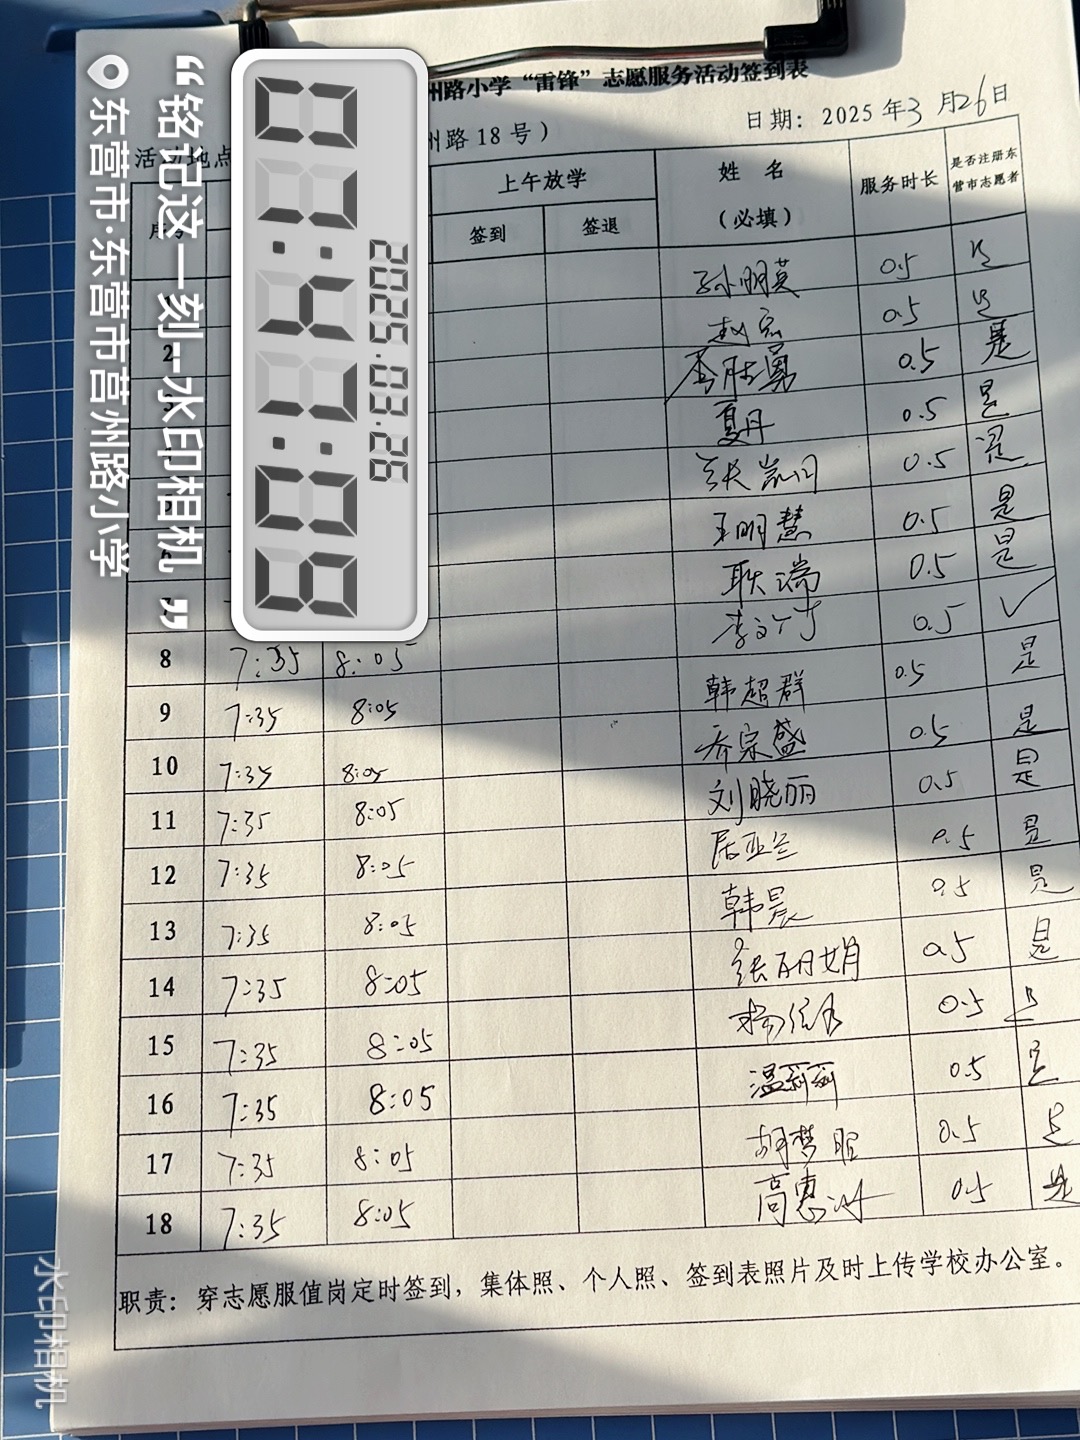 州路小学“雷锋”志愿服务活动签到表
活动地点 州路18号） 日期：2025年3月26日
上午放学 姓名（必填） 服务时长 是否注册东营市志愿者
签到 签退
孙明英 0.5 是
2 赵宏 0.5 是
0.5 是
夏丹 0.5 是
0.5 是
王明慧 0.5 是
耿端 0.5 是
8 7:35 8:05 0.5 ✓
9 7:35 8:05 韩超群 0.5 是
10 7:35 8:05 乔宗盛 0.5 是
11 7:35 8:05 刘晓丽 0.5 是
12 7:35 8:05 居亚兰 0.5 是
13 7:35 8:05 韩晨 0.5 是
14 7:35 8:05 张丽娟 0.5 是
15 7:35 8:05 0.5 是
16 7:35 8:05 温莉莉 0.5 是
17 7:35 8:05 0.5 是
18 7:35 8:05 0.5 是
职责：穿志愿服值岗定时签到，集体照、个人照、签到表照片及时上传学校办公室。
2025.03.26
“铭记这一刻-水印相机”
东营市·东营市营州路小学
水印相机